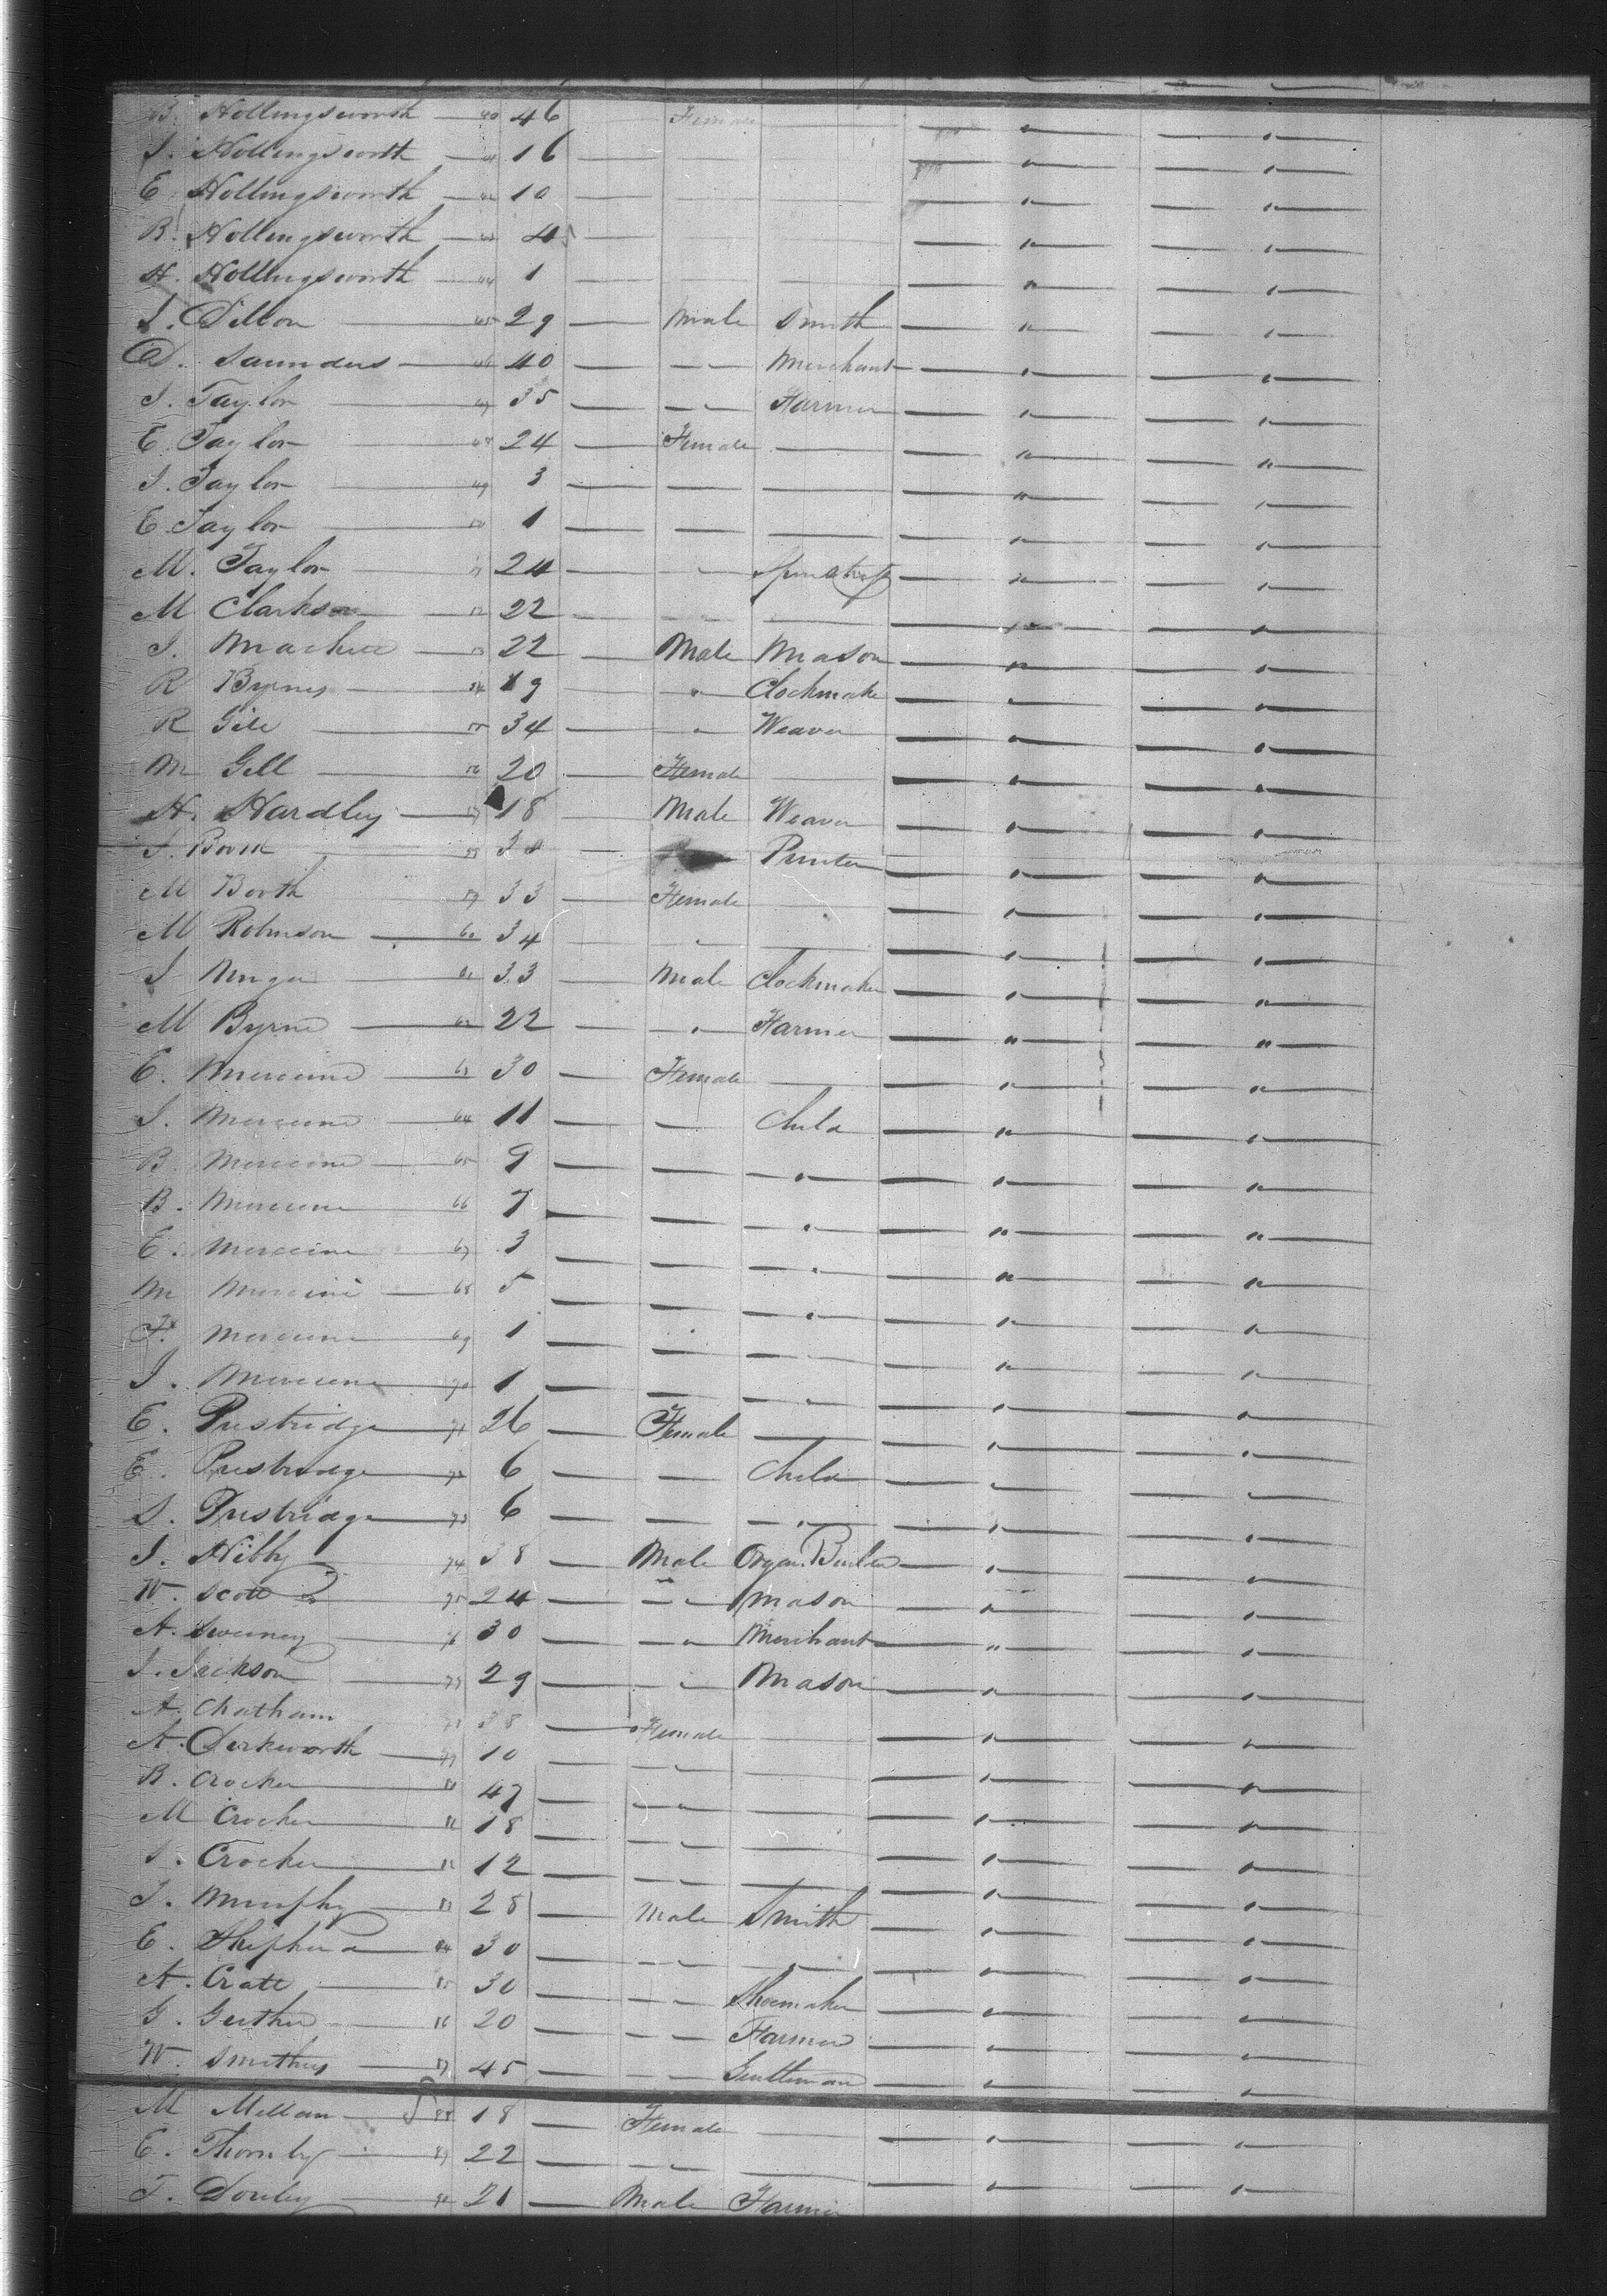 B. Hollingsworth — 40 46 Female — — " — — " —
J. Hollingsworth — 41 16 — — " — — " —
E Hollingsworth — 42 10 — — " — — " —
B. Hollingsworth — 43 4 — — " — — " —
H. Hollingsworth — 44 1 — — " — — " —
J. Dillon — 45 29 — Male Smith — " — — " —
D. Saunders — 46 40 — — " — Merchant — " — — " —
J. Taylor — 47 35 — — " — Farmer — " — — " —
E. Taylor — 48 24 — Female — — " — — " —
J. Taylor — 49 3 — — — — " — — " —
E. Taylor — 50 1 — — — — " — — " —
M. Taylor — 51 24 — " Spinstress — " — — " —
M Clarkson — 52 22 — — " — — — " — — " —
J. — 53 22 — Male Mason — " — — " —
R Byrnes — 54 19 — " Clockmake — " — — " —
R Gile — 55 34 — " Weaver — " — — " —
M Gill — 56 20 — Female — — " — — " —
H. Hardley — 57 18 — Male Weaver — " — — " —
J. 58 — Printer — " — — " —
M Booth 59 33 — Female — — " — — " —
M Robinson — 60 34 — " — — — " — — " —
J — 61 33 — Male Clockmaker — " — — " —
M Byrne — 62 22 — — " — Farmer — " — — " —
E. — 63 30 — Female — — " — — " —
J. — 64 11 — — Child — " — — " —
B. — 65 9 — — — " — — " — — " —
B. — 66 7 — — — " — — " — — " —
E. — 67 3 — — — " — — " — — " —
M — 68 5 — — — " — — " — — " —
F. — 69 1 — — — — " — — " —
J. — 70 1 — — — " — — " — — " —
E. Prestridge — 71 26 — Female — — " — — " —
E. Prestridge — 72 6 — — Child — " — — " —
S. Prestridge — 73 6 — — — " — — " — — " —
J. Hibby — 74 38 — Male Organ Builder — " — — " —
W. Scott 75 24 — — " Mason — " — — " —
A. Sweeney — 76 30 — — " Merchant — " — — " —
J. Jackson — 77 29 — — " Mason — " — — " —
A. Chatham 78 38 — Female — — " — — " —
A. Derkworth — 79 10 — — " — — — " — — " —
R. Crocker — 80 47 — — " — — — " — — " —
M Crocker — 81 18 — — " — — — " — — " —
J. Crocker — 82 12 — — " — — — " — — " —
J. Murphy — 83 28 — Male Smith — " — — " —
E. Shepherd — 84 30 — — " — — " — — " — — " —
A. Crate — 85 30 — — " Shoemaker — " — — " —
G. — 86 20 — — — Farmer — " — — " —
W. Smithers — 87 45 — — " Gentleman — " — — " —
M Millan — 88 18 — Female — — " — — " —
E. Thornby — 89 22 — — " — — — " — — " —
T. — 90 21 — Male Farmer